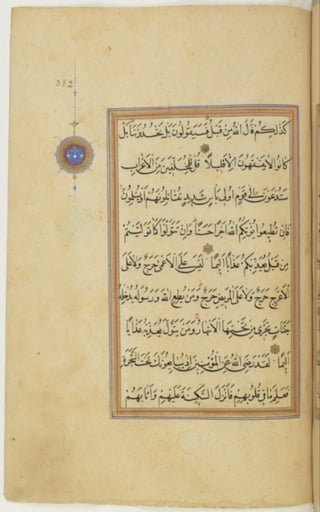 352
كَذَٰلِكُمْ قَالَ اللهُ مِنْ قَبْلُ فَسَيَقُولُونَ بَلْ تَحْسُدُونَنَا بَلْ
كَانُوا لَا يَفْقَهُونَ إِلَّا قَلِيلًا قُلْ لِلْمُخَلَّفِينَ مِنَ الْأَعْرَابِ
سَتُدْعَوْنَ إِلَىٰ قَوْمٍ أُولِي بَأْسٍ شَدِيدٍ تُقَاتِلُونَهُمْ أَوْ يُسْلِمُونَ
فَإِنْ تُطِيعُوا يُؤْتِكُمُ اللهُ أَجْرًا حَسَنًا وَإِنْ تَتَوَلَّوْا كَمَا تَوَلَّيْتُمْ
مِنْ قَبْلُ يُعَذِّبْكُمْ عَذَابًا أَلِيمًا لَيْسَ عَلَى الْأَعْمَىٰ حَرَجٌ وَلَا عَلَى
الْأَعْرَجِ حَرَجٌ وَلَا عَلَى الْمَرِيضِ حَرَجٌ وَمَنْ يُطِعِ اللهَ وَرَسُولَهُ يُدْخِلْهُ
جَنَّاتٍ تَجْرِي مِنْ تَحْتِهَا الْأَنْهَارُ وَمَنْ يَتَوَلَّ يُعَذِّبْهُ عَذَابًا
أَلِيمًا لَقَدْ رَضِيَ اللهُ عَنِ الْمُؤْمِنِينَ إِذْ يُبَايِعُونَكَ تَحْتَ الشَّجَرَةِ
فَعَلِمَ مَا فِي قُلُوبِهِمْ فَأَنْزَلَ السَّكِينَةَ عَلَيْهِمْ وَأَثَابَهُمْ